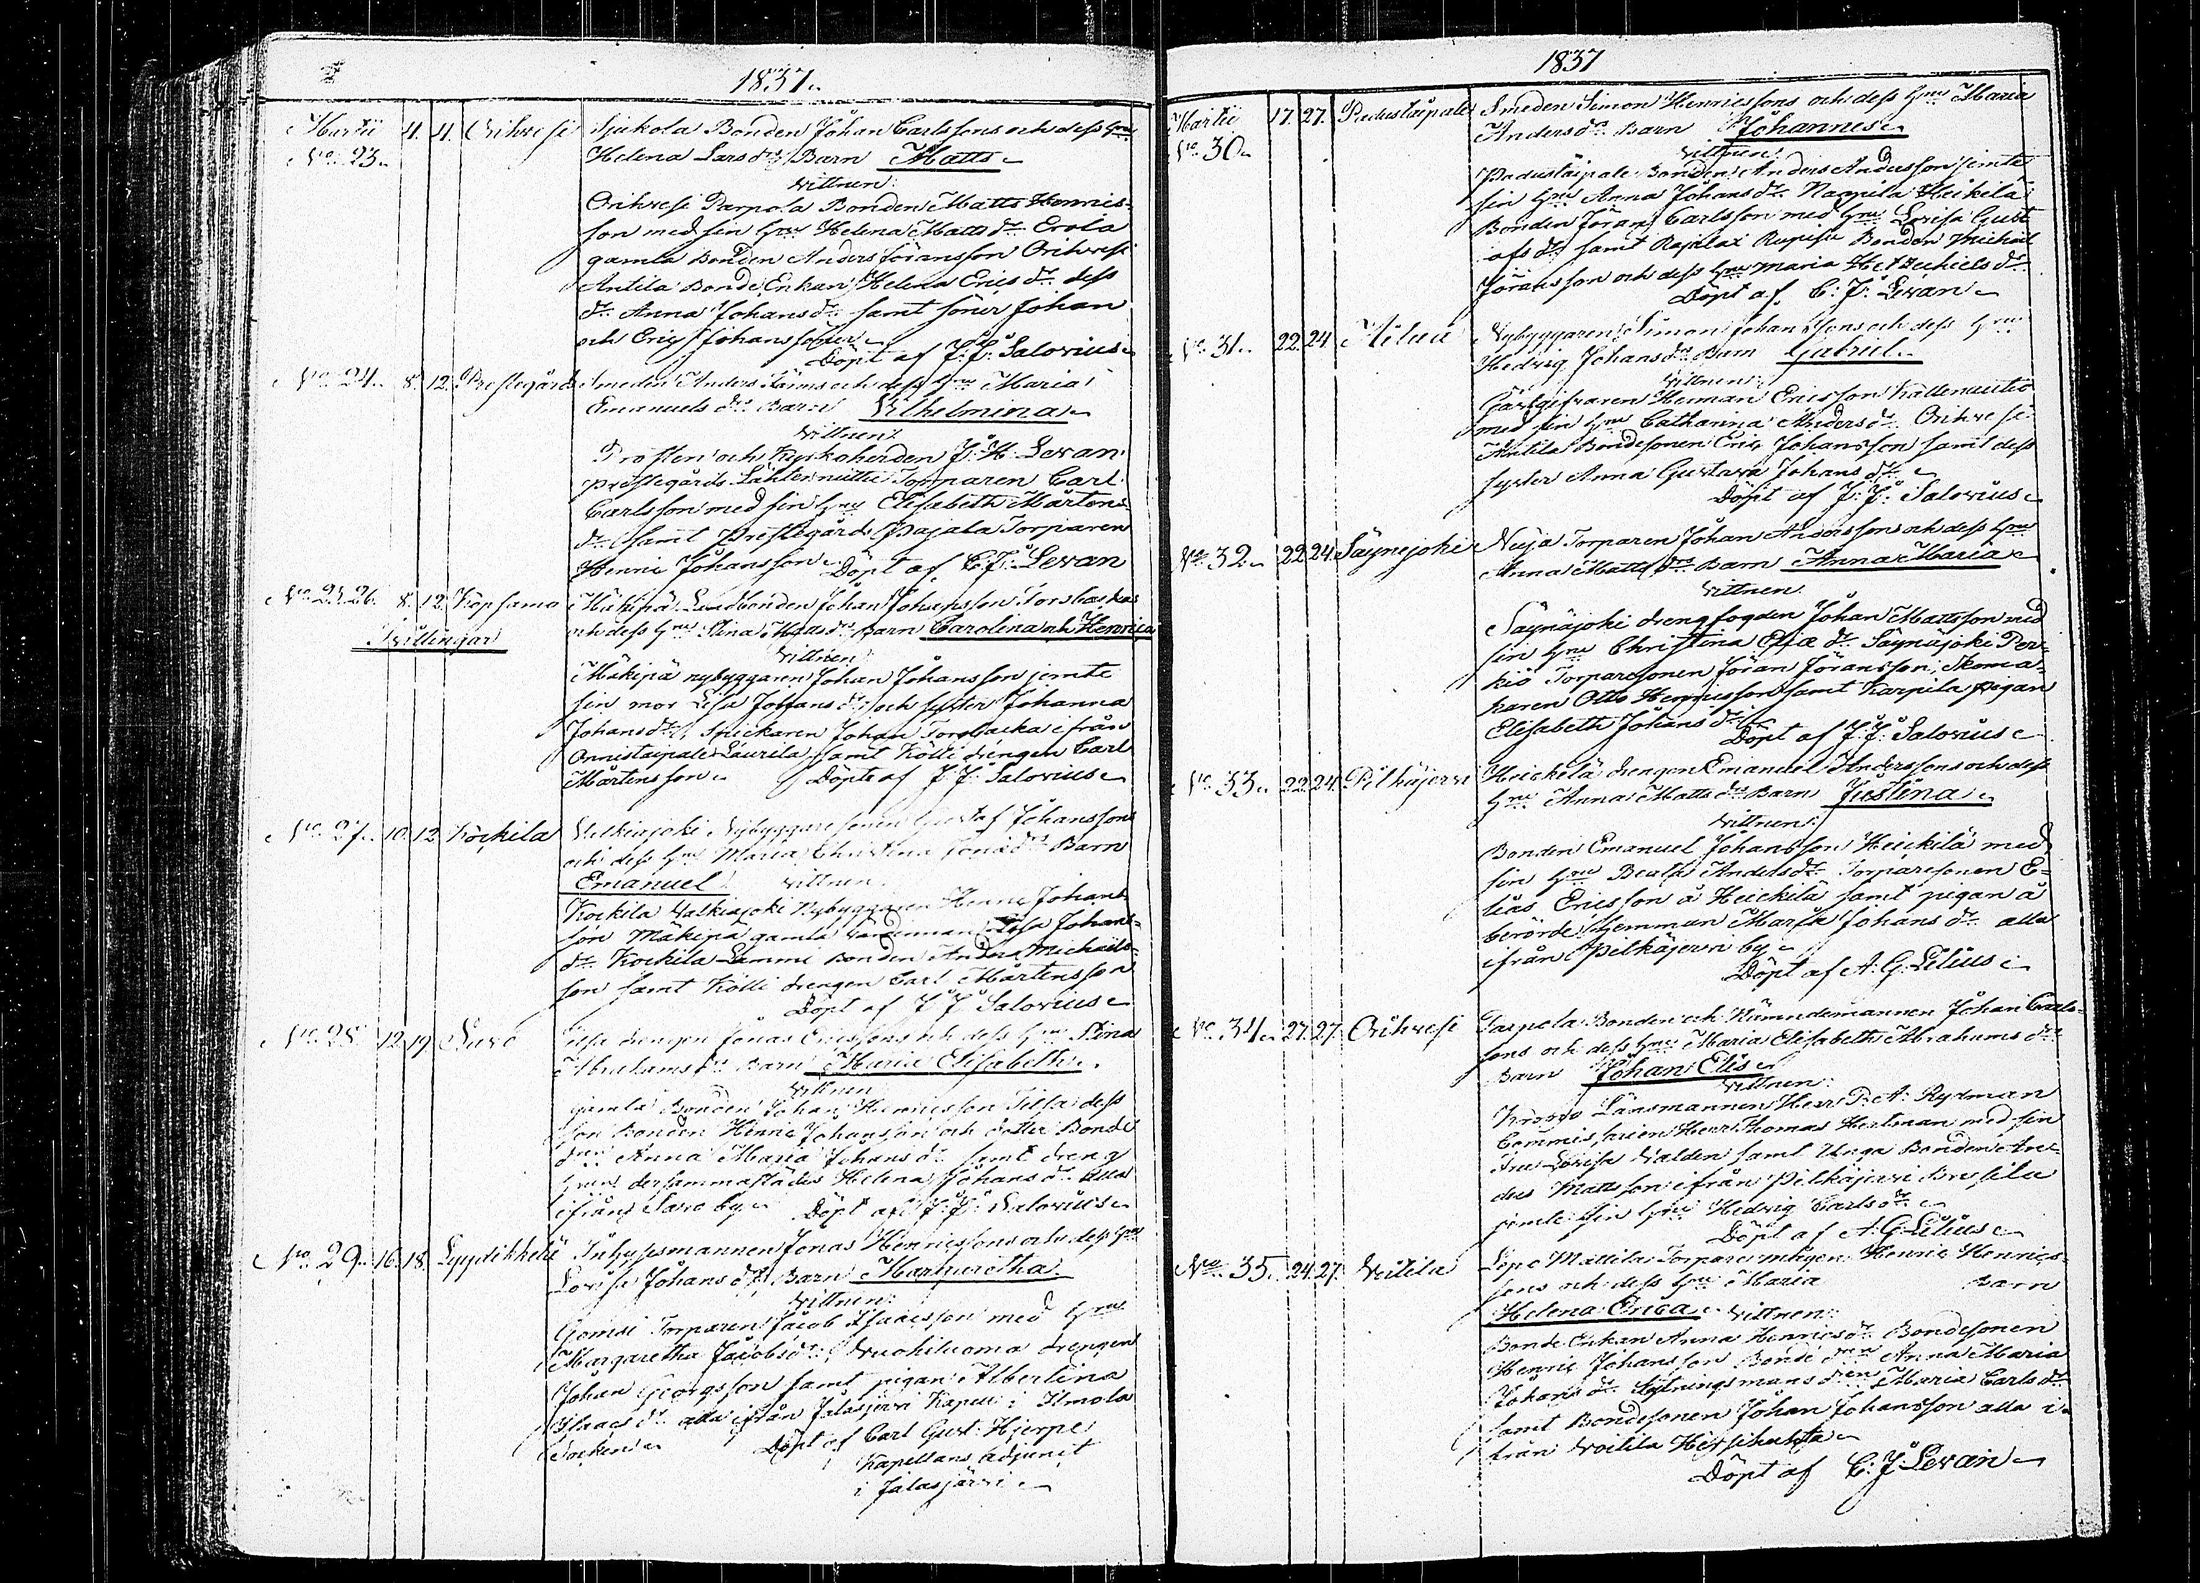 1837.
Martii 4. 4. Orihvesi Sjukola Bonden Johan Carlssons och dess Hru
No 23. Helena Larsdr Barn Matts
Vittnen:
Orihvesi Parpola Bonden Matts Henrics-
son med sin Hru Helena Mattsdr Erola
gamla Bonden Anders Jöransson Orihvesi
Antila Bonde Enkan Helena Ericsdr dess
dr Anna Johansdr samt söner Johan
och Eric Johanssöner
Döpt af J:J: Salovius
No 24. 8. 12. Prestegård Smeden Anders och dess Hru Maria
Emanuelsdr Barn Vilhelmina
Vittnen:
Prosten och Kyrkoherden J:H: Levan
Prestegårds Torparen Carl
Carlsson med sin Hru Elisabeth Mårtens
dr samt Prestegårds Pajala Torparen
Henric Johansson Döpt af C:J: Levan
No 25. 26. 8. 12. Köpsamo Mäkipä Landbonden Johan Johansson
Tvillingar och dess Hru Stina Mattsdr Barn Carolina och Henrica
Vittnen:
Mäkipä nybyggaren Johan Johansson jemte
sin mor Lisa Johansdr och syster Johanna
Johansdr, Johan Torsbacka ifrån
Laurila samt Kölli drengen Carl
Mårtensson Döpte af J:J: Salovius
No 27. 10. 12. Kockila Valkiajoki Nybyggaresonen Gustaf Johanssons
och dess Hru Maria Christina Barn
Emanuel Vittnen:
Kockila Valkiajoki Nybyggaren Henric Johans-
son Mäkipä gamla Lisa Johans-
dr Kockila Lammi Bonden Anders Michaels-
son samt Kölli drengen Carl Mårtensson
Döpt af J:J: Salovius
No 28. 12. 19. Saro drengen Jonas Ericssons och dess Hru Stina
Abrahamsdr Barn Maria Elisabeth
Vittnen
gamla Bonden Johan Henricsson dess
son Bonden Henric Johansson och dotter Bonde
Anna Maria Johansdr samt dreng
dersammastädes Helena Johansdr alla
ifrån Saro by Döpt af J:J: Salovius
No 29. 16. 18. Jonas Henricssons och dess Hru
Lovisa Johansdr, Barn Margaretha
Vittnen:
Torparen Jacob Isaacsson med Hru
Margaretha Jacobsdr, Vuohiluoma drengen
Johan Georgsson samt pigan Albertina
Isaacsdr alla ifrån Jalasjervi Kapell i Ilmola
Socken Döpt af Carl Gust: Hjerpe
Kapellans Adjunct
i Jalasjärvi
1837
Martii 17. 27. Smeden Simon Henricssons och dess Hru Maria
No 30. Andersdr Barn Johannes
Vittnen:
Bonden Anders Andersson jemte
sin Hru Anna Johansdr Heikilä
Bonden Jöran Carlsson med Hru Lovisa Gust
afsdr samt Bonden Michael
Jöransson och dess Hru Maria Hetzechielsdr
Döpt af C:J: Levan
No 31. 22. 24. Nybyggaren Simon Johanssons och dess Hru
Hedvig Johansdr Barn Gabriel
Vittnen:
Gästgifvaren Herman Ericsson
med sin Hru Catharina Andersdr Orihvesi
Antila Bondesonen Eric Johansson samt dess
syster Anna Gustava Johansdr
Döpt af J:J: Salovius
No 32. 22. 24. Säynejoki Neija Torparen Johan Anderssons och dess Hru
Anna Mattsdr Barn Anna Maria
Vittnen.
Säynäjoki drengfogden Johan Mattsson med
sin Hru Christina dr Säynäjoki Per-
kiö Torparesonen Jöran Jöransson, Skoma-
karen Otto Henricsson samt Karpila pigan
Elisabeth Johansdr
Döpt af J:J: Salovius
No 33. 22. 24. Pilkäjerwi Heickelä drengen Emanuel Anderssons och dess
Hru Anna Mattsdr Barn Justina
Vittnen:
Bonden Emanuel Johansson Heickilä med
sin Hru Beata Andersdr Torparesonen E-
lias Ericsson å Heickilä samt pigan å
berörde Hemman Maria Johansdr alla
ifrån Pilkäjervi by
Döpt af A:G: Lilius
No 34. 27. 27. Orihvesi Parpola Bonden och Nämndemannen Johan Carls-
sons och dess Hru Maria Elisabeth Abrahamsdr
Barn Johan Elis
Vittnen:
Länsmannen Herr P:A: Rydman
Commissarien Herr Thomas Hertman med sin
Fru Lovisa Walden samt Unga Bonden An-
ders Mattsson ifrån Pilkäjervi
jemte sin Hru Hedvig Carlsdr
Döpt af A:G: Lilius
No 35. 24. 27. Voitila Mattila Torparemågen Henric Henrics-
sons och dess Hru Maria Barn
Helena Erica Vittnen:
Bonde Enkan Anna Henricsdr Bondesonen
Henric Johansson Bonde Anna Maria
Johansdr Maria Carlsdr
samt Bondesonen Johan Johansson alla i-
från Voitila
Döpt af C:J: Levan